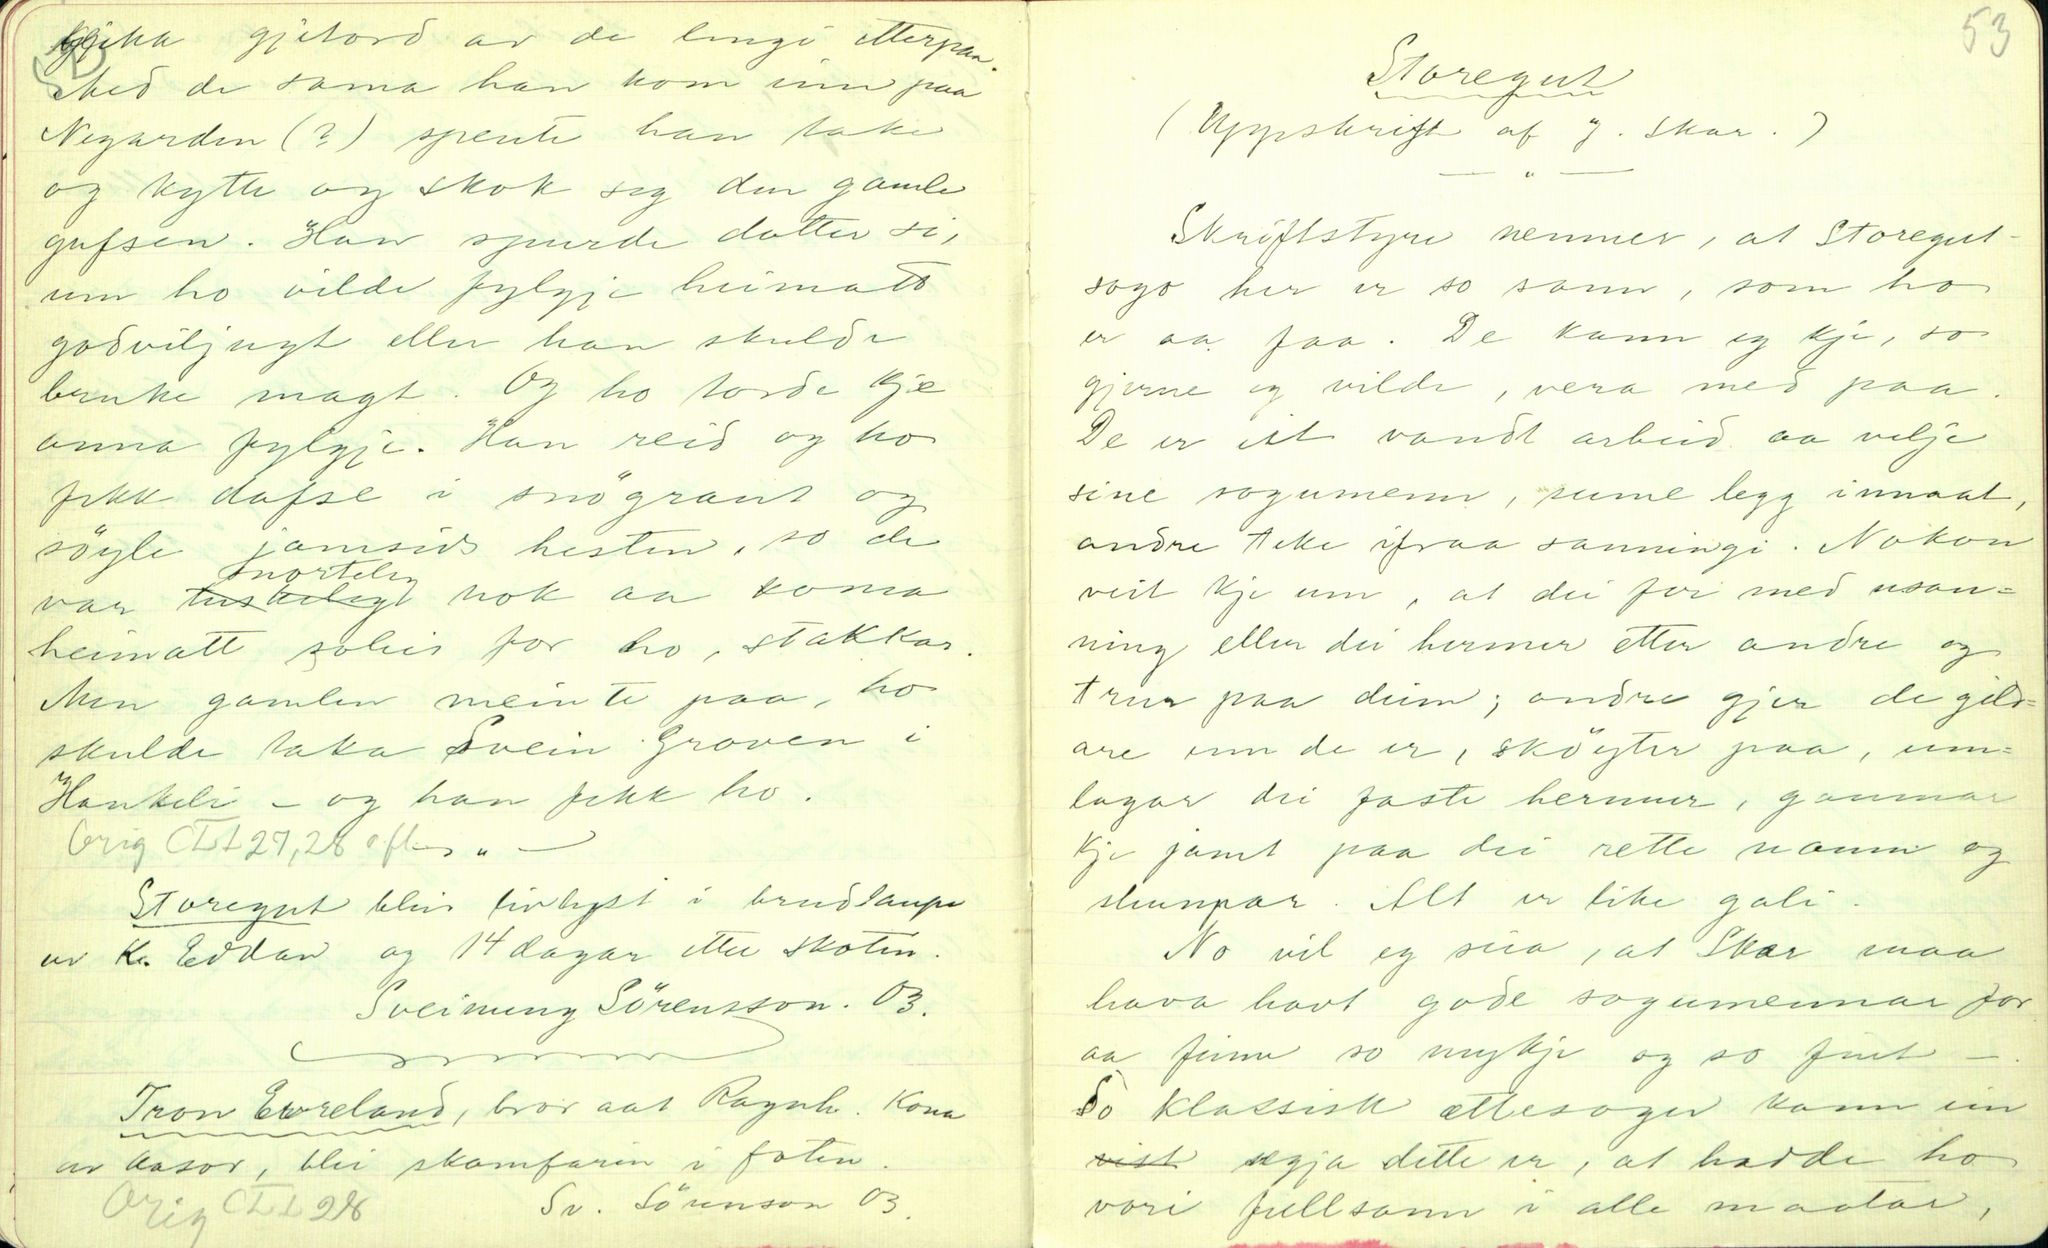 gjeta gjetord av de lengi etterpaa.
Med de sama han kom inn paa
Negarden (?) spente han take
og kytte og skok seg den gamle
gufsen. Han spurde dotter si,
um ho vilde fylgje heimatt
godviljugt eller han skulde
bruke magt. Og ho torde kje
anna fylgje. Han reid og ho
fekk dafse i snögraut og
söyle jamsids hesten, so de
snorteleg
var tuskelegt nok aa koma
heimatt soleis for ho, stakkar.
Men gamlen meinte paa, ho
skulde taka Svein Groven i
Haukeli – og han fekk ho.
Orig CLI 27,28 efter " –
Storegut blir livlyst i brudlaupe
av K. Eddan og 14 dagar etter skoten.
Sveinung Sörensson. 03.
Tron Evreland, bror aat Ragnh. Kona
av Aasov, blei skamfarin i foten.
Orig CLI 28 Sv. Sörenson 03.
53
Storegut
(Uppskrift af J. Skar.)
— " —
Skriftstyre nemner, at Storegut-
sogo her er so sann, som ho
er aa faa. De kann eg kje, so
gjerne eg vilde, vera med paa.
De er eit vandt arbeid aa velje
sine sogumenn, sume legg innaat,
andre teke ifraa sanningi. Nokon
veit kje um, at dei fer med usan=
ning eller dei hermer etter andre og
trur paa deim; andre gjer de gild=
are enn de er, sköyter paa, um=
lagar dei faste hermur, gaumar
kje jamt paa dei rette namn og
slumpar. Alt er like gali.
No vil eg seia, at Skar maa
hava havt gode sogumennar for
aa finne so mykje og so fint –.
So klassisk ættesoger kann ein
vist segja dette er, at hadde ho
vori fullsann i alle maatar,